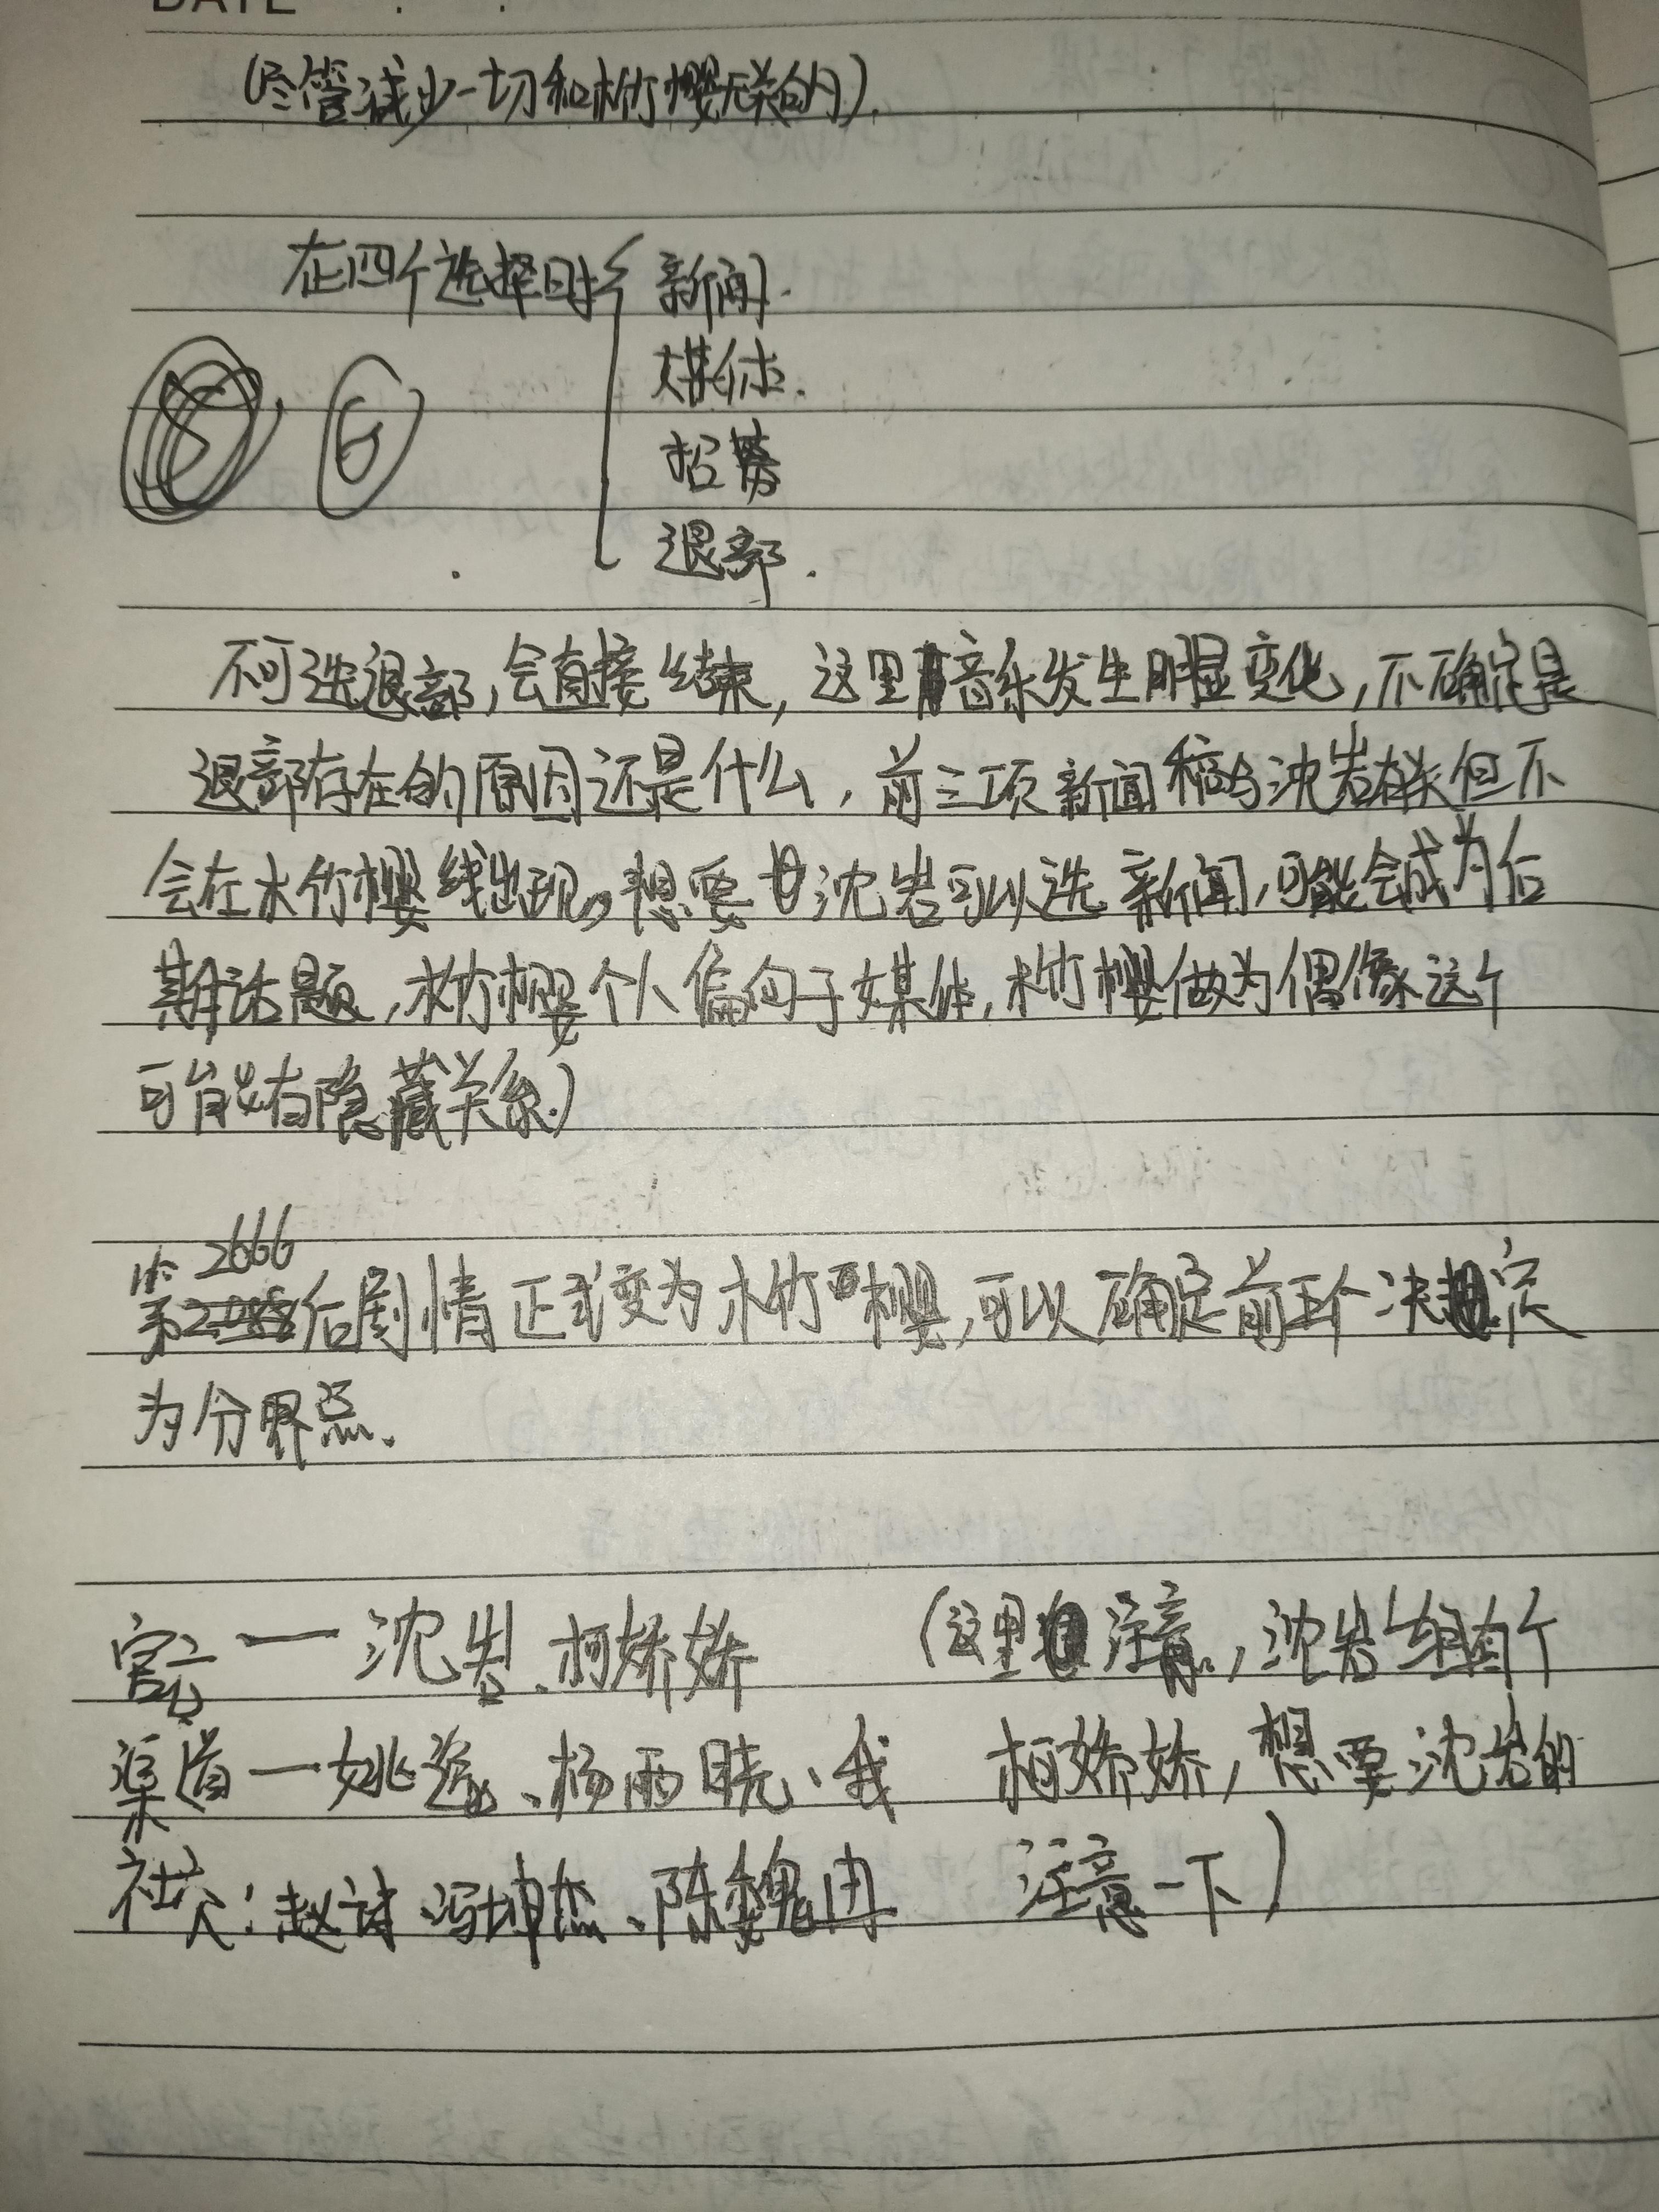 DATE . .
(尽管减少一切和木竹樱无关的).
在四个选择时 新闻.
媒体.
⑥
招募
退部.
不可选退部,会直接结束,这里音乐发生明显变化,不确定是
退部存在的原因还是什么,前三项新闻稿与沈岩有关但不
会在木竹樱线出现,想要沈岩可以选新闻,可能会成为后
期话题,木竹樱个人偏向于媒体,木竹樱做为偶像这个
可能有隐藏关系)
第2666
后剧情正式变为木竹樱,可以确定前五个决定
为分界点.
宣 — 沈岩、柯娇娇 (这里注意,沈岩组两个
渠道 — 姚遥、杨雨晓、我 柯娇娇,想要沈岩的
社交:赵诗、冯坤杰、陈魏冉 注意一下)